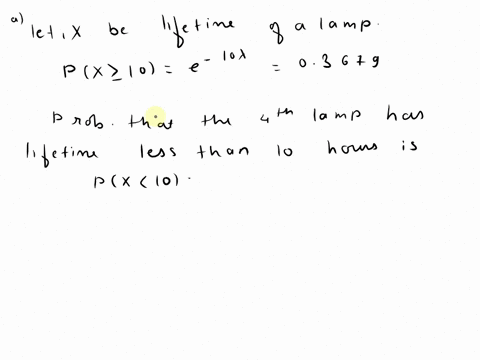 a) let, X be lifetime of a lamp.
P(X ≥ 10) = e^{-10λ} = 0.3679
Prob. that the 4th lamp has
lifetime less than 10 hours is
P(X < 10) .